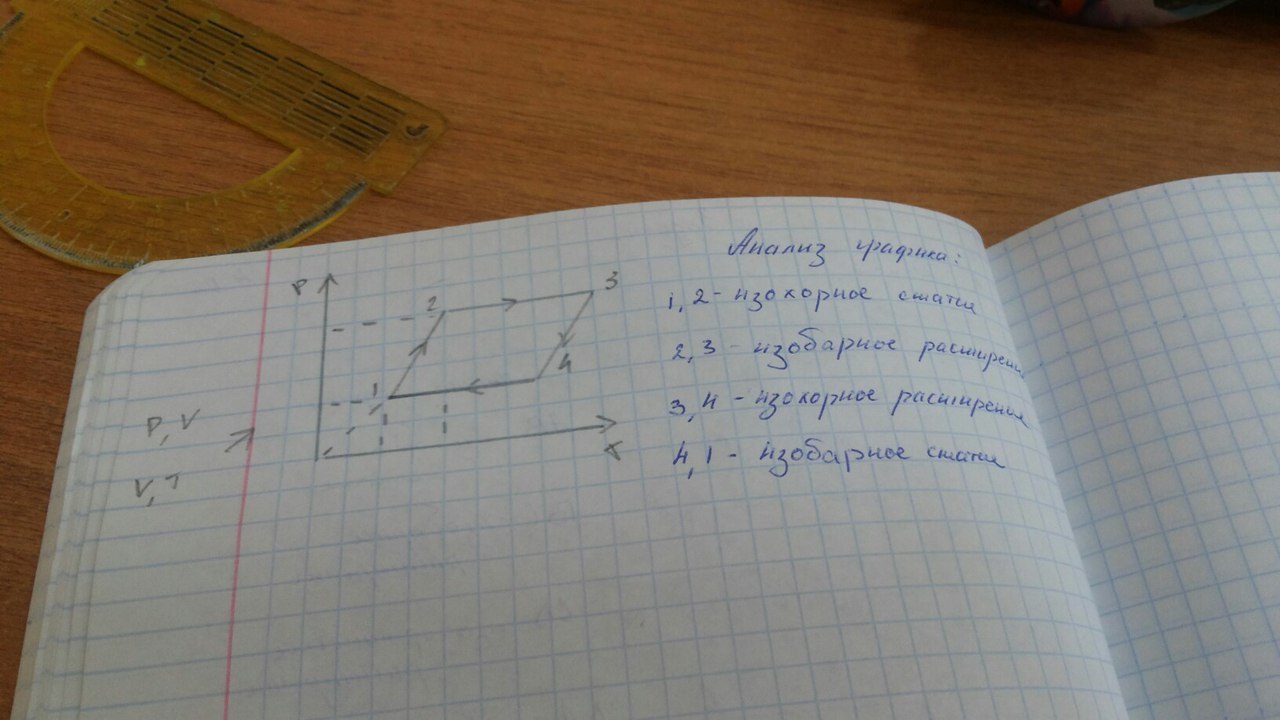 P
2
3
1
4
P, V
V, T
Анализ графика:
1, 2 - изохорное сжатие
2, 3 - изобарное расширение
3, 4 - изохорное расширение
4, 1 - изобарное сжатие